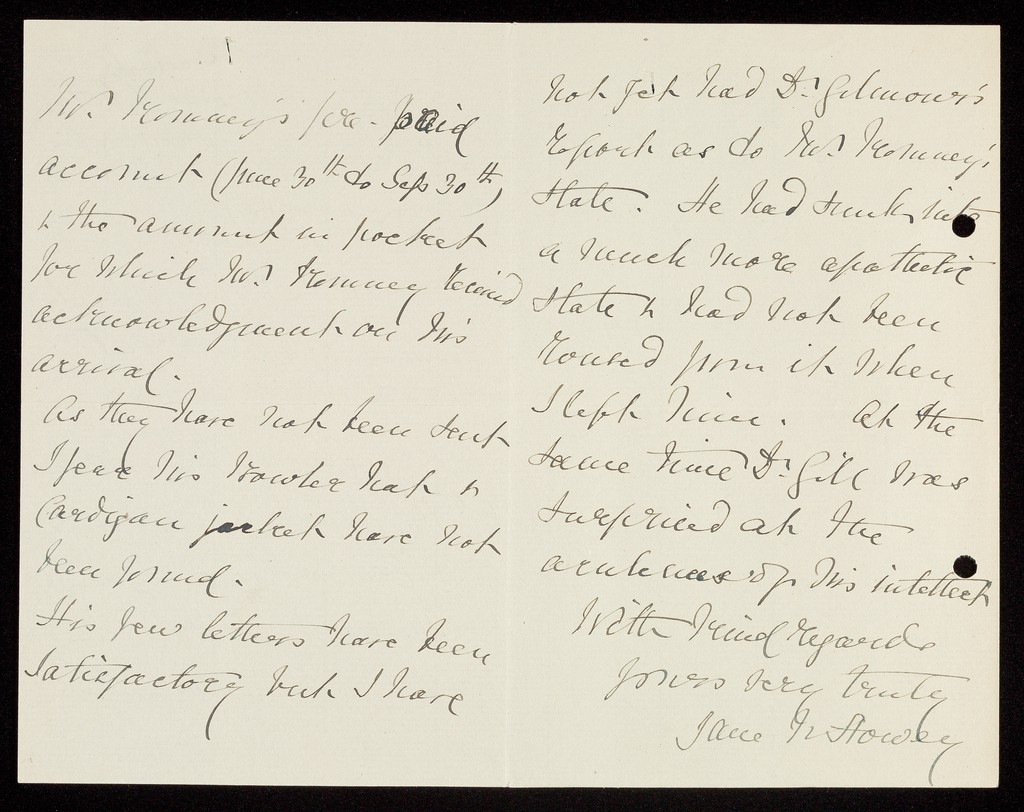 Mr. Romney's pre-paid
account (June 30th to Sep 30th)
& the amount in pocket
for which Mr. Romney received
acknowledgment on his
arrival.
As they have not been sent
I fear his Bowler hat &
Cardigan jacket have not
been found.
His few letters have been
satisfactory but I have
not yet had Dr. Gilmour's
report as to Mr. Romney's
state. He had sunk into
a much more apathetic
state & had not been
roused from it when
I left him. At the
same time Dr. Gill was
surprised at the
acuteness of his intellect
With kind regards
yours very truly
Jane Stowey